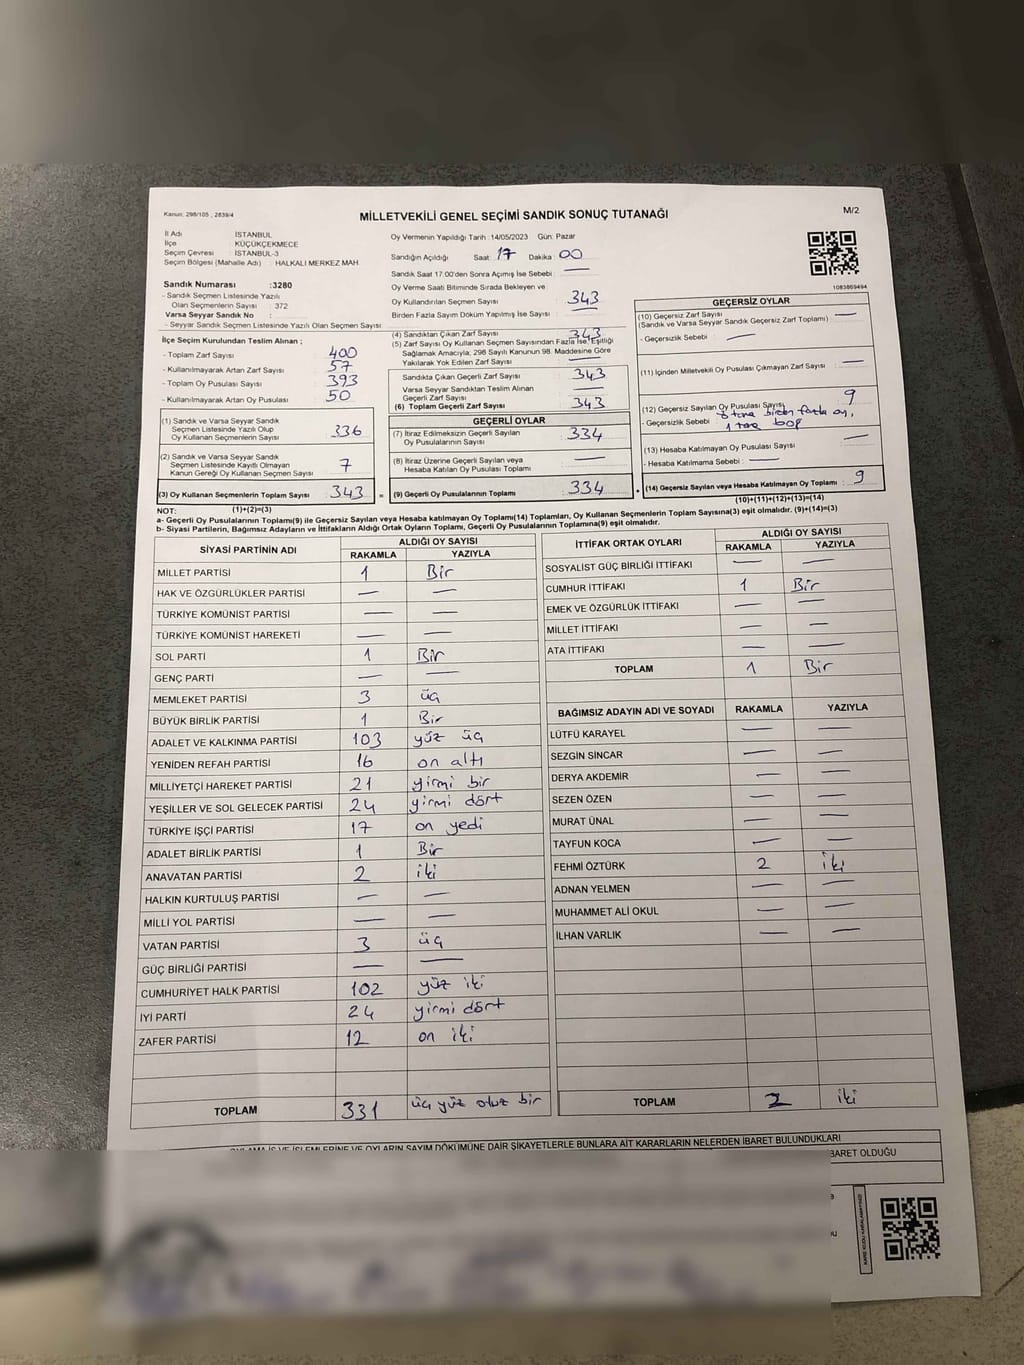 Kanun: 298/105 , 2839/4
MİLLETVEKİLİ GENEL SEÇİMİ SANDIK SONUÇ TUTANAĞI
M/2
İl Adı İSTANBUL
İlçe KÜÇÜKÇEKMECE
Seçim Çevresi İSTANBUL-3
Seçim Bölgesi (Mahalle Adı) : HALKALI MERKEZ MAH.
Sandık Numarası :3280
- Sandık Seçmen Listesinde Yazılı
Olan Seçmenlerin Sayısı : 372
Varsa Seyyar Sandık No :
- Seyyar Sandık Seçmen Listesinde Yazılı Olan Seçmen Sayısı
İlçe Seçim Kurulundan Teslim Alınan ;
- Toplam Zarf Sayısı 400
- Kullanılmayarak Artan Zarf Sayısı 57
- Toplam Oy Pusulası Sayısı 393
- Kullanılmayarak Artan Oy Pusulası 50
(1) Sandık ve Varsa Seyyar Sandık
Seçmen Listesinde Yazılı Olup
Oy Kullanan Seçmenlerin Sayısı 336
(2) Sandık ve Varsa Seyyar Sandık
Seçmen Listesinde Kayıtlı Olmayan
Kanun Gereği Oy Kullanan Seçmen Sayısı 7
(3) Oy Kullanan Seçmenlerin Toplam Sayısı 343 =
Oy Vermenin Yapıldığı Tarih :14/05/2023 Gün: Pazar
Sandığın Açıldığı Saat: 17 Dakika 00
Sandık Saat 17:00'den Sonra Açımış İse Sebebi : —
Oy Verme Saati Bitiminde Sırada Bekleyen ve
Oy Kullandırılan Seçmen Sayısı 343
Birden Fazla Sayım Döküm Yapılmış İse Sayısı : —
(4) Sandıktan Çıkan Zarf Sayısı 343
(5) Zarf Sayısı Oy Kullanan Seçmen Sayısından Fazla İse, Eşitliği
Sağlamak Amacıyla, 298 Sayılı Kanunun 98. Maddesine Göre
Yakılarak Yok Edilen Zarf Sayısı —
Sandıkta Çıkan Geçerli Zarf Sayısı 343
Varsa Seyyar Sandıktan Teslim Alınan
Geçerli Zarf Sayısı —
(6) Toplam Geçerli Zarf Sayısı 343
GEÇERLİ OYLAR
(7) İtiraz Edilmeksizin Geçerli Sayılan
Oy Pusulalarının Sayısı 334
(8) İtiraz Üzerine Geçerli Sayılan veya
Hesaba Katılan Oy Pusulası Toplamı —
(9) Geçerli Oy Pusulalarının Toplamı 334 +
1083869494
GEÇERSİZ OYLAR
(10) Geçersiz Zarf Sayısı —
(Sandık ve Varsa Seyyar Sandık Geçersiz Zarf Toplamı)
- Geçersizlik Sebebi : —
(11) İçinden Milletvekili Oy Pusulası Çıkmayan Zarf Sayısı —
(12) Geçersiz Sayılan Oy Pusulası Sayısı 9
- Geçersizlik Sebebi : 8 tane birden fazla oy,
1 tane boş
(13) Hesaba Katılmayan Oy Pusulası Sayısı —
- Hesaba Katılmama Sebebi : —
(14) Geçersiz Sayılan veya Hesaba Katılmayan Oy Toplamı 9
NOT: (1)+(2)=(3)
(10)+(11)+(12)+(13)=(14)
a- Geçerli Oy Pusulalarının Toplamı(9) ile Geçersiz Sayılan veya Hesaba katılmayan Oy Toplamı(14) Toplamları, Oy Kullanan Seçmenlerin Toplam Sayısına(3) eşit olmalıdır. (9)+(14)=(3)
b- Siyasi Partilerin, Bağımsız Adayların ve İttifakların Aldığı Ortak Oyların Toplamı, Geçerli Oy Pusulalarının Toplamına(9) eşit olmalıdır.
SİYASİ PARTİNİN ADI ALDIĞI OY SAYISI
RAKAMLA YAZIYLA
MİLLET PARTİSİ 1 Bir
HAK VE ÖZGÜRLÜKLER PARTİSİ — —
TÜRKİYE KOMÜNİST PARTİSİ — —
TÜRKİYE KOMÜNİST HAREKETİ — —
SOL PARTİ 1 Bir
GENÇ PARTİ — —
MEMLEKET PARTİSİ 3 üç
BÜYÜK BİRLİK PARTİSİ 1 Bir
ADALET VE KALKINMA PARTİSİ 103 yüz üç
YENİDEN REFAH PARTİSİ 16 on altı
MİLLİYETÇİ HAREKET PARTİSİ 21 yirmi bir
YEŞİLLER VE SOL GELECEK PARTİSİ 24 yirmi dört
TÜRKİYE İŞÇİ PARTİSİ 17 on yedi
ADALET BİRLİK PARTİSİ 1 Bir
ANAVATAN PARTİSİ 2 iki
HALKIN KURTULUŞ PARTİSİ — —
MİLLİ YOL PARTİSİ — —
VATAN PARTİSİ 3 üç
GÜÇ BİRLİĞİ PARTİSİ — —
CUMHURİYET HALK PARTİSİ 102 yüz iki
İYİ PARTİ 24 yirmi dört
ZAFER PARTİSİ 12 on iki
TOPLAM 331 üç yüz otuz bir
İTTİFAK ORTAK OYLARI ALDIĞI OY SAYISI
RAKAMLA YAZIYLA
SOSYALİST GÜÇ BİRLİĞİ İTTİFAKI — —
CUMHUR İTTİFAKI 1 Bir
EMEK VE ÖZGÜRLÜK İTTİFAKI — —
MİLLET İTTİFAKI — —
ATA İTTİFAKI — —
TOPLAM 1 Bir
BAĞIMSIZ ADAYIN ADI VE SOYADI RAKAMLA YAZIYLA
LÜTFÜ KARAYEL — —
SEZGİN SİNCAR — —
DERYA AKDEMİR — —
SEZEN ÖZEN — —
MURAT ÜNAL — —
TAYFUN KOCA — —
FEHMİ ÖZTÜRK 2 iki
ADNAN YELMEN — —
MUHAMMET ALİ OKUL — —
İLHAN VARLIK — —
TOPLAM 2 iki
İŞ VE İŞLEMLERİNE VE OYLARIN SAYIM DÖKÜMÜNE DAİR ŞİKAYETLERLE BUNLARA AİT KARARLARIN NELERDEN İBARET BULUNDUKLARI
BARET OLDUĞU